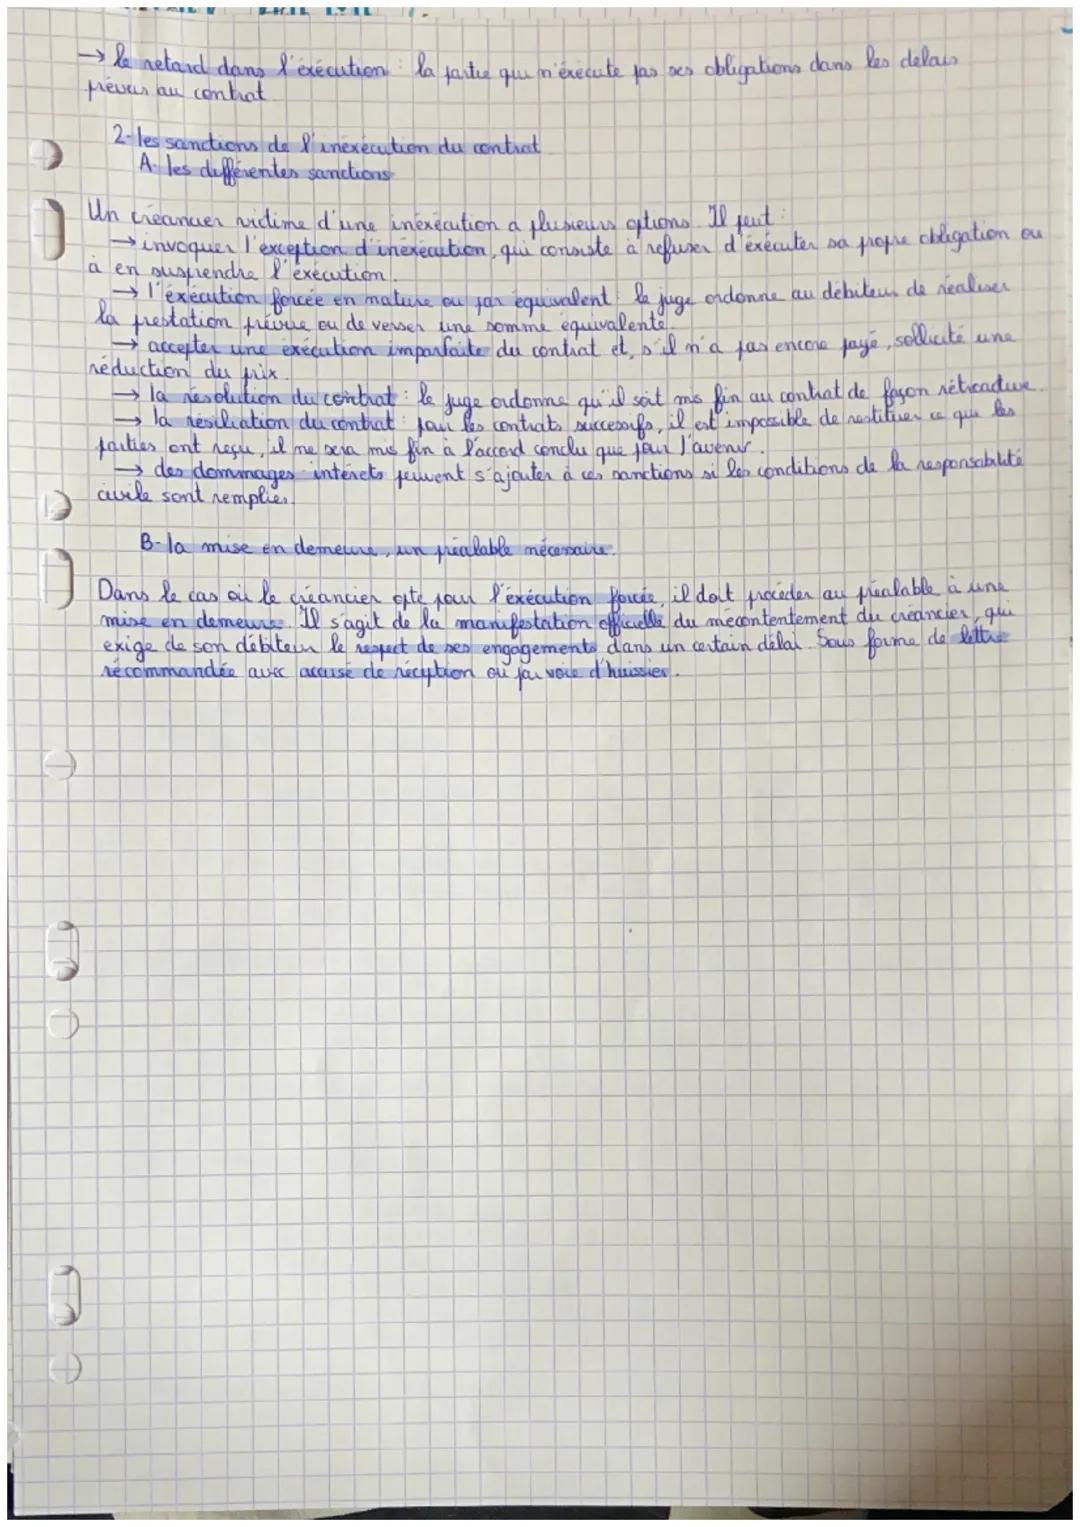 → le retard dans l'exécution : la partie qui n'éxécute pas ses obligations dans les délais
prévus au contrat.
2- les sanctions de l'inéxécution du contrat
A- les différentes sanctions
Un créancier victime d'une inéxécution a plusieurs options. Il peut :
→ invoquer l'exception d'inéxécution, qui consiste à refuser d'éxécuter sa propre obligation ou
à en suspendre l'exécution.
→ l'éxécution forcée en nature ou par équivalent : le juge ordonne au débiteur de réaliser
la prestation prévue ou de verser une somme équivalente.
→ accepter une éxécution imparfaite du contrat et, s'il n'a pas encore payé, sollicité une
réduction du prix.
→ la résolution du contrat : le juge ordonne qu'il soit mis fin au contrat de façon rétroactive.
→ la résiliation du contrat : pour les contrats successifs, il est impossible de restituer ce que les
parties ont reçu, il ne sera mis fin à l'accord conclu que pour l'avenir.
→ des dommages-intérêts peuvent s'ajouter à ces sanctions si les conditions de la responsabilité
civile sont remplies.
B- la mise en demeure, un préalable nécessaire.
Dans le cas où le créancier opte pour l'éxécution forcée, il doit procéder au préalable à une
mise en demeure. Il s'agit de la manifestation officielle du mécontentement du créancier, qui
exige de son débiteur le respect de ses engagements dans un certain délai. Sous forme de lettre
récommandée avec accusé de réception ou par voie d'huissier.